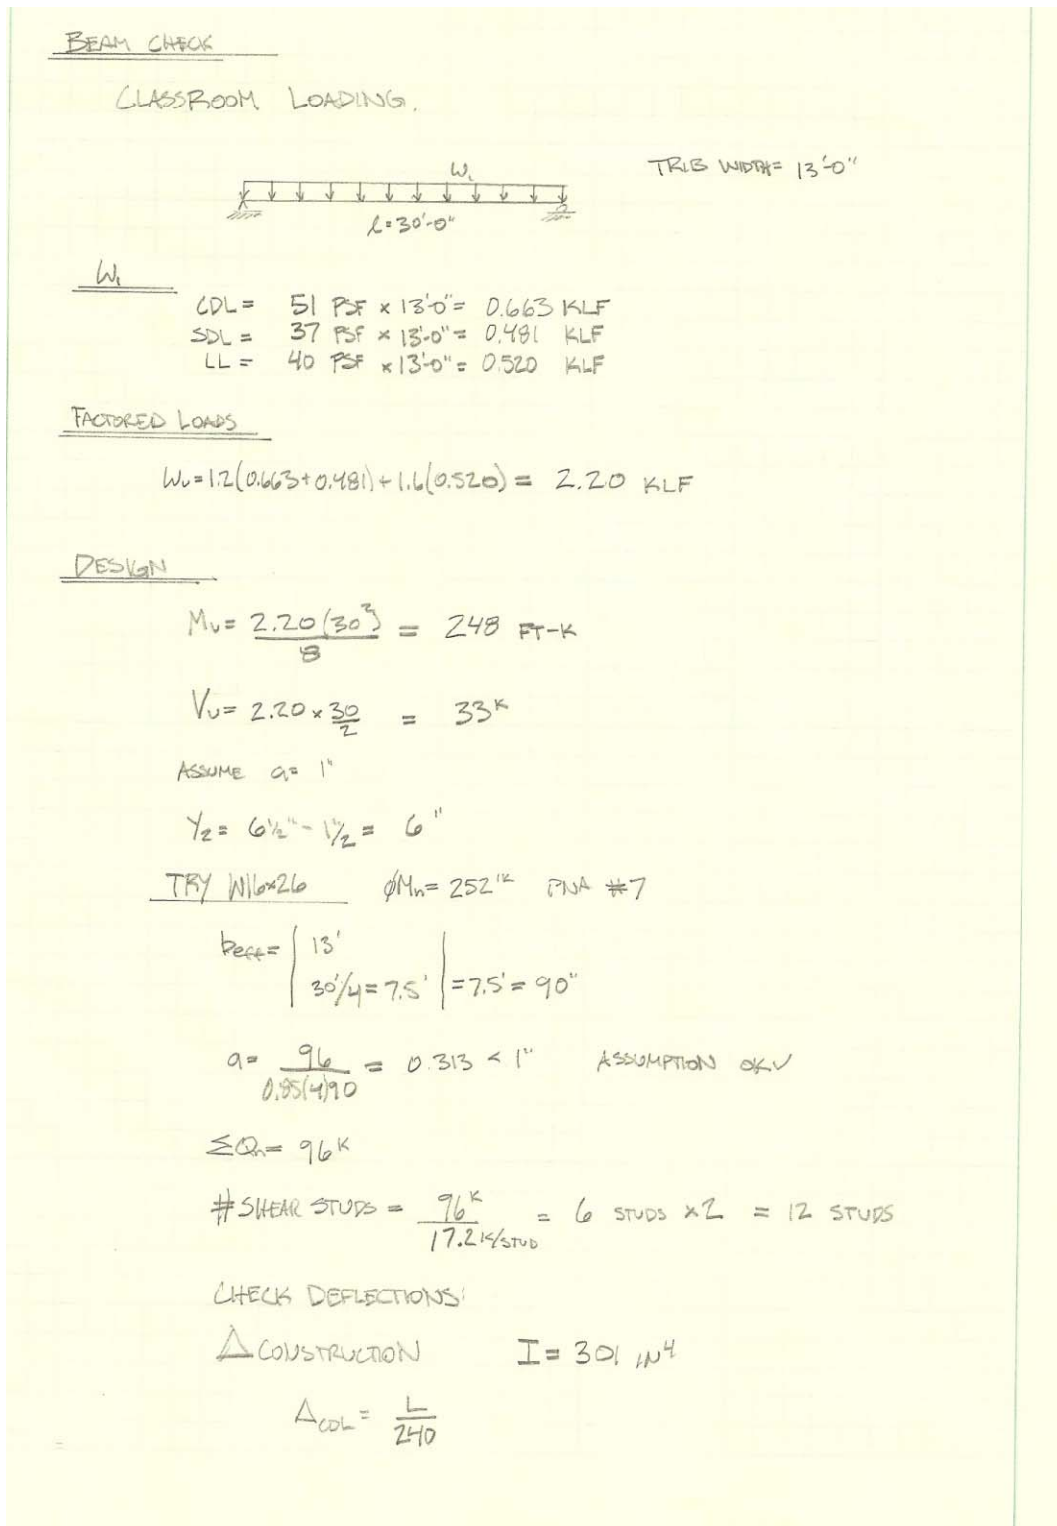 BEAM CHECK
CLASSROOM LOADING.
W₁ TRIB WIDTH = 13'-0"
l=30'-0"
W₁
CDL = 51 PSF × 13'-0" = 0.663 KLF
SDL = 37 PSF × 13'-0" = 0.481 KLF
LL = 40 PSF × 13'-0" = 0.520 KLF
FACTORED LOADS
Wu = 1.2(0.663+0.481)+1.6(0.520) = 2.20 KLF
DESIGN
Mu = 2.20(30²)/8 = 248 FT-K
Vu = 2.20 × 30/2 = 33ᴷ
ASSUME a = 1"
Y₂ = 6½" - 1"/2 = 6"
TRY W16×26 ϕMn = 252'ᴷ PNA #7
beff = | 13'
30'/4 = 7.5' | = 7.5' = 90"
a = 96/0.85(4)90 = 0.313 < 1" ASSUMPTION OK✓
ΣQn = 96ᴷ
#SHEAR STUDS = 96ᴷ/17.2 K/STUD = 6 STUDS ×2 = 12 STUDS
CHECK DEFLECTIONS:
Δ CONSTRUCTION I = 301 IN⁴
ΔCDL = L/240